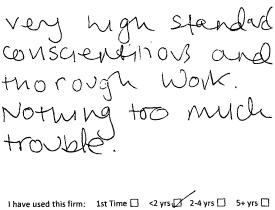 very high standard
conscientious and
thorough work.
Nothing too much
trouble.
I have used this firm: 1st Time ☐ <2 yrs ☑ 2-4 yrs ☐ 5+ yrs ☐